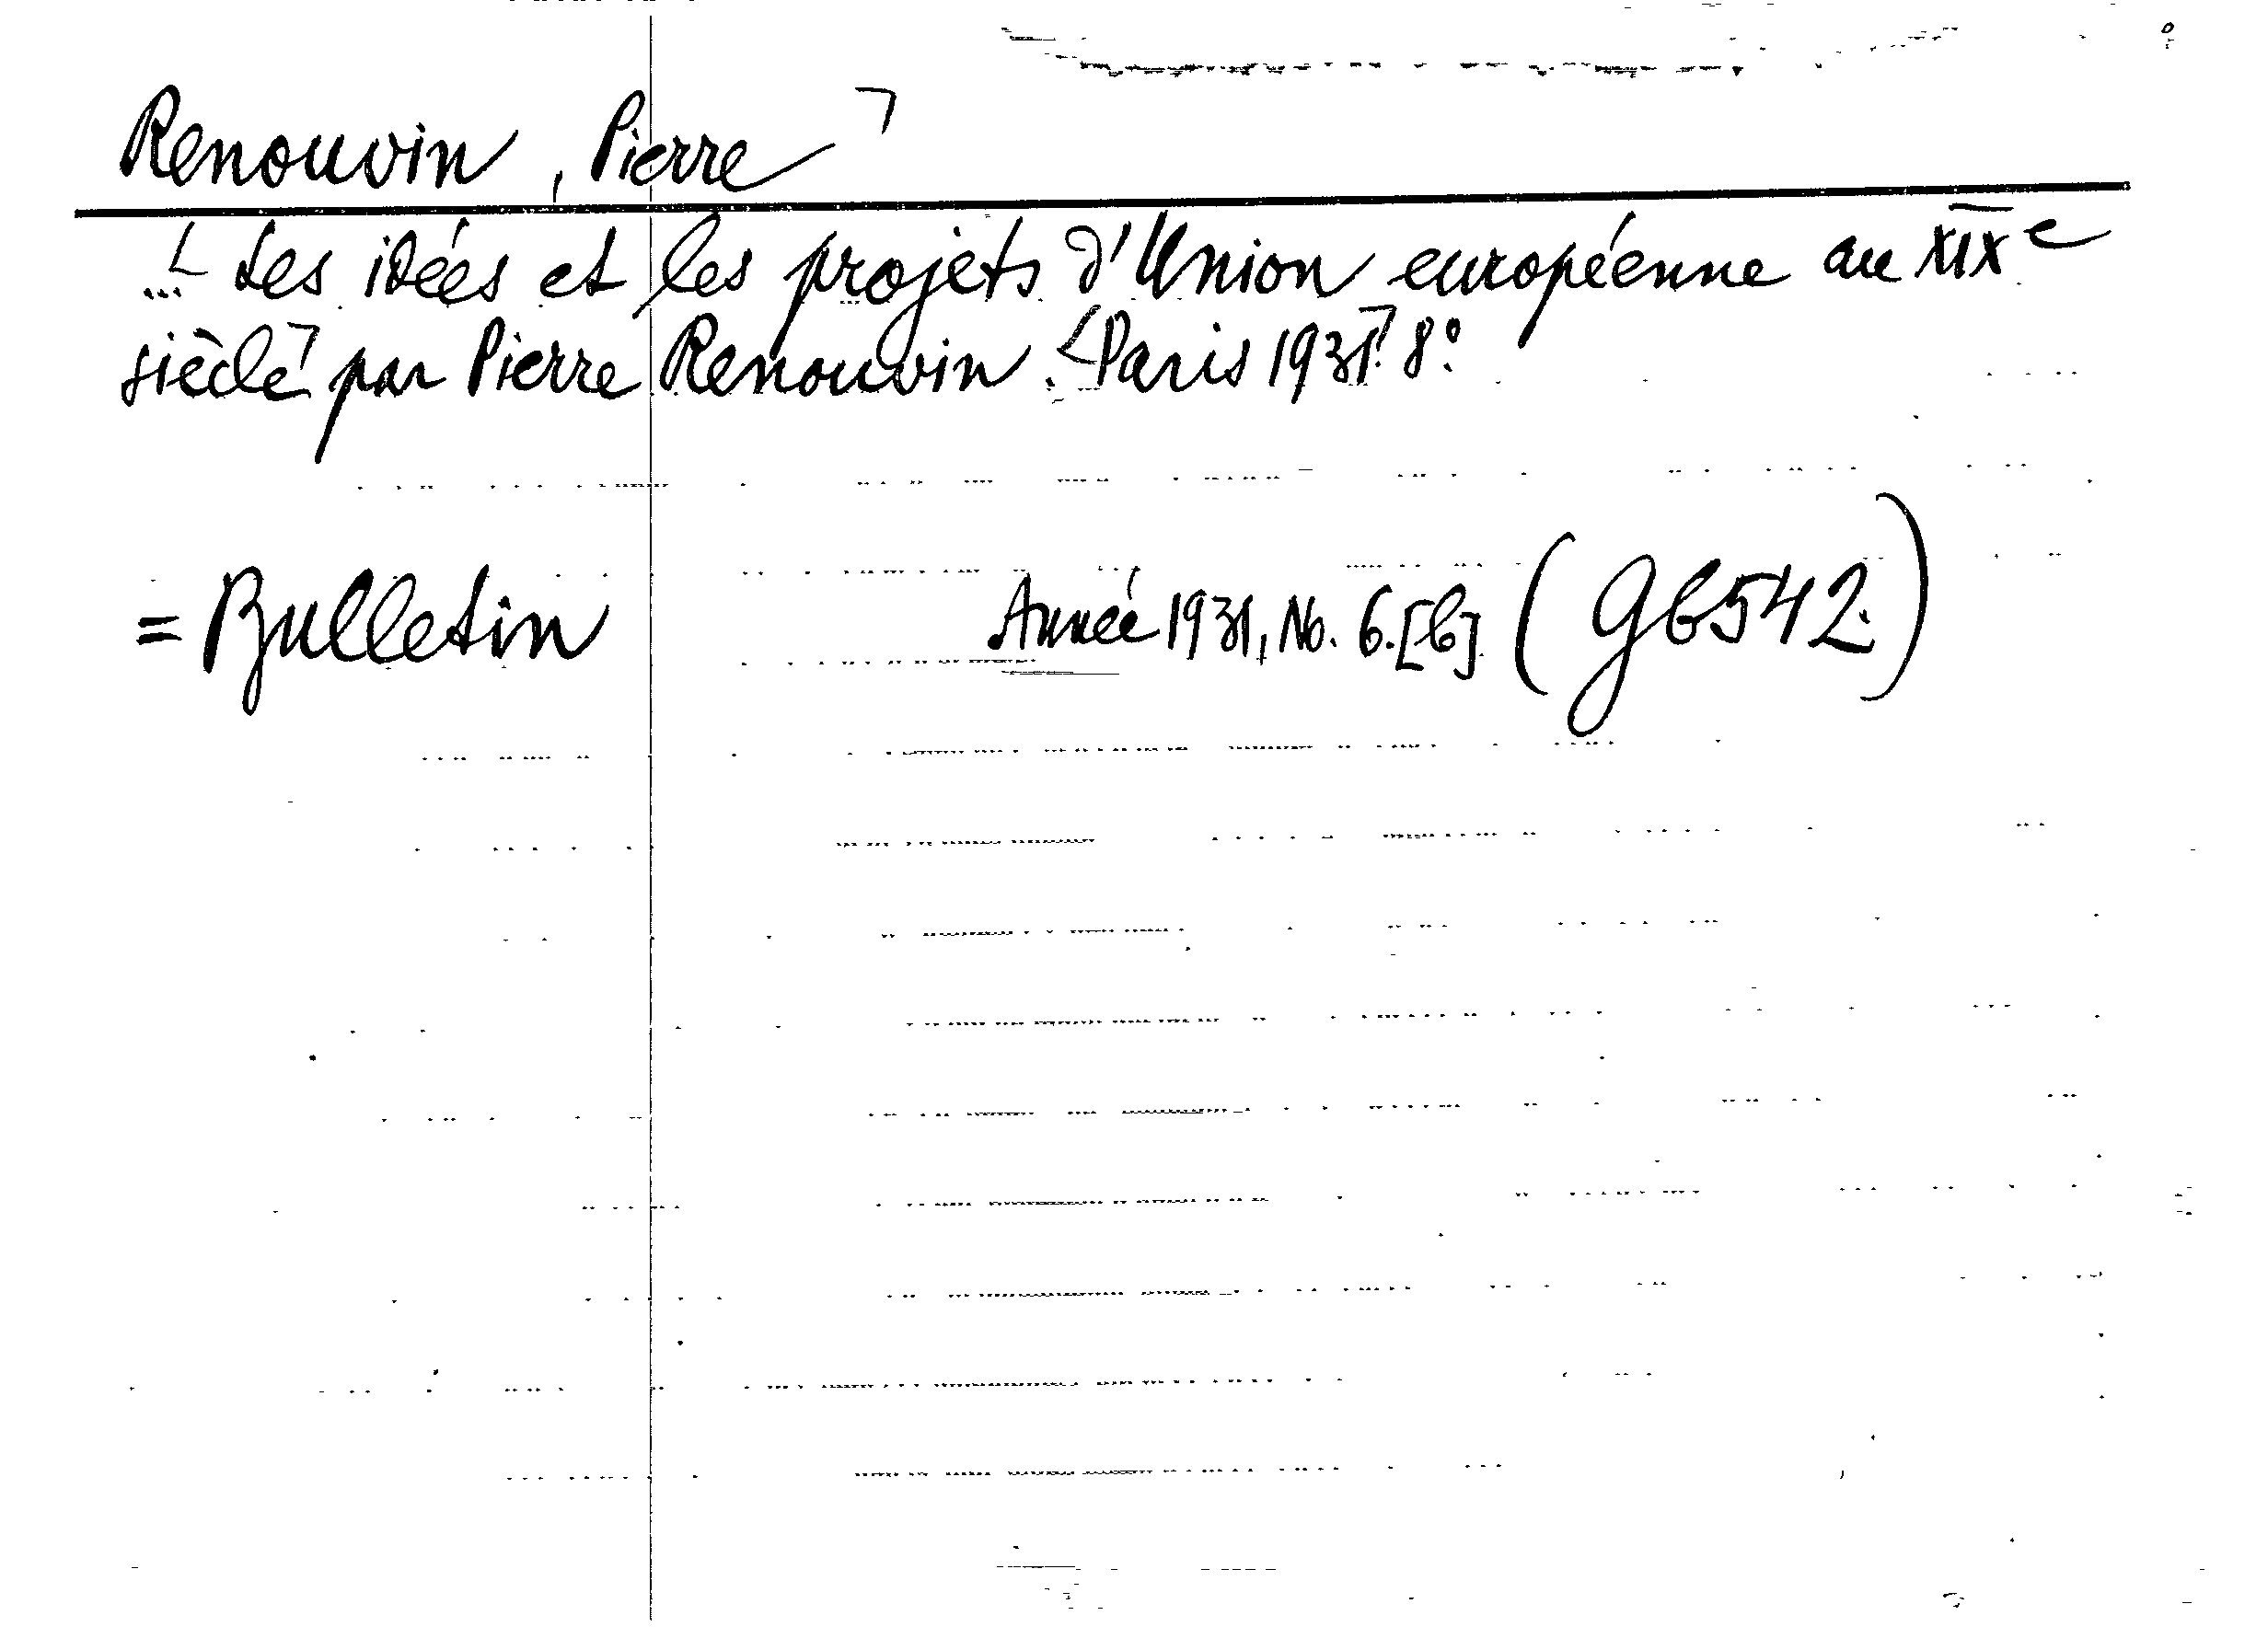 Renouvin, Pierre
... Les idées et les projets d'Union européenne au XIXe
siècle par Pierre Renouvin. Paris 1931. 8°.
= Bulletin Année 1931, No. 6.[b] (Gb542.)